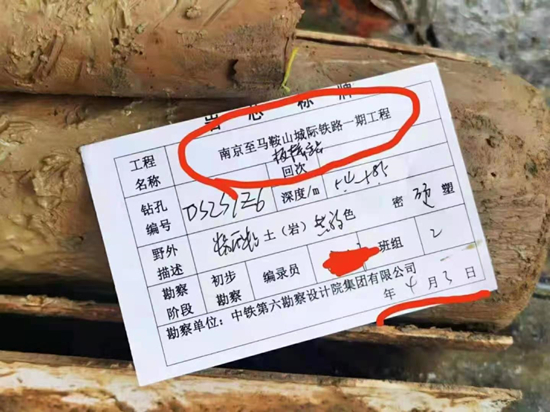 岩芯标牌
工程名称 南京至马鞍山城际铁路一期工程
板桥站
钻孔编号 回次 深度/m
野外描述 粉质黏土（岩）黄褐色 密 硬塑
勘察阶段 初步勘察 编录员 班组 2
勘察单位：中铁第六勘察设计院集团有限公司
年4月3日